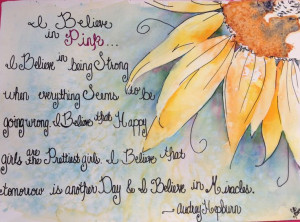 I Believe
in
Pink...
I Believe in being Strong
when everything Seems to be
going wrong. I Believe that Happy
girls are the Prettiest girls. I Believe that
tomorrow is another Day & I Believe in Miracles.
- Audrey Hepburn